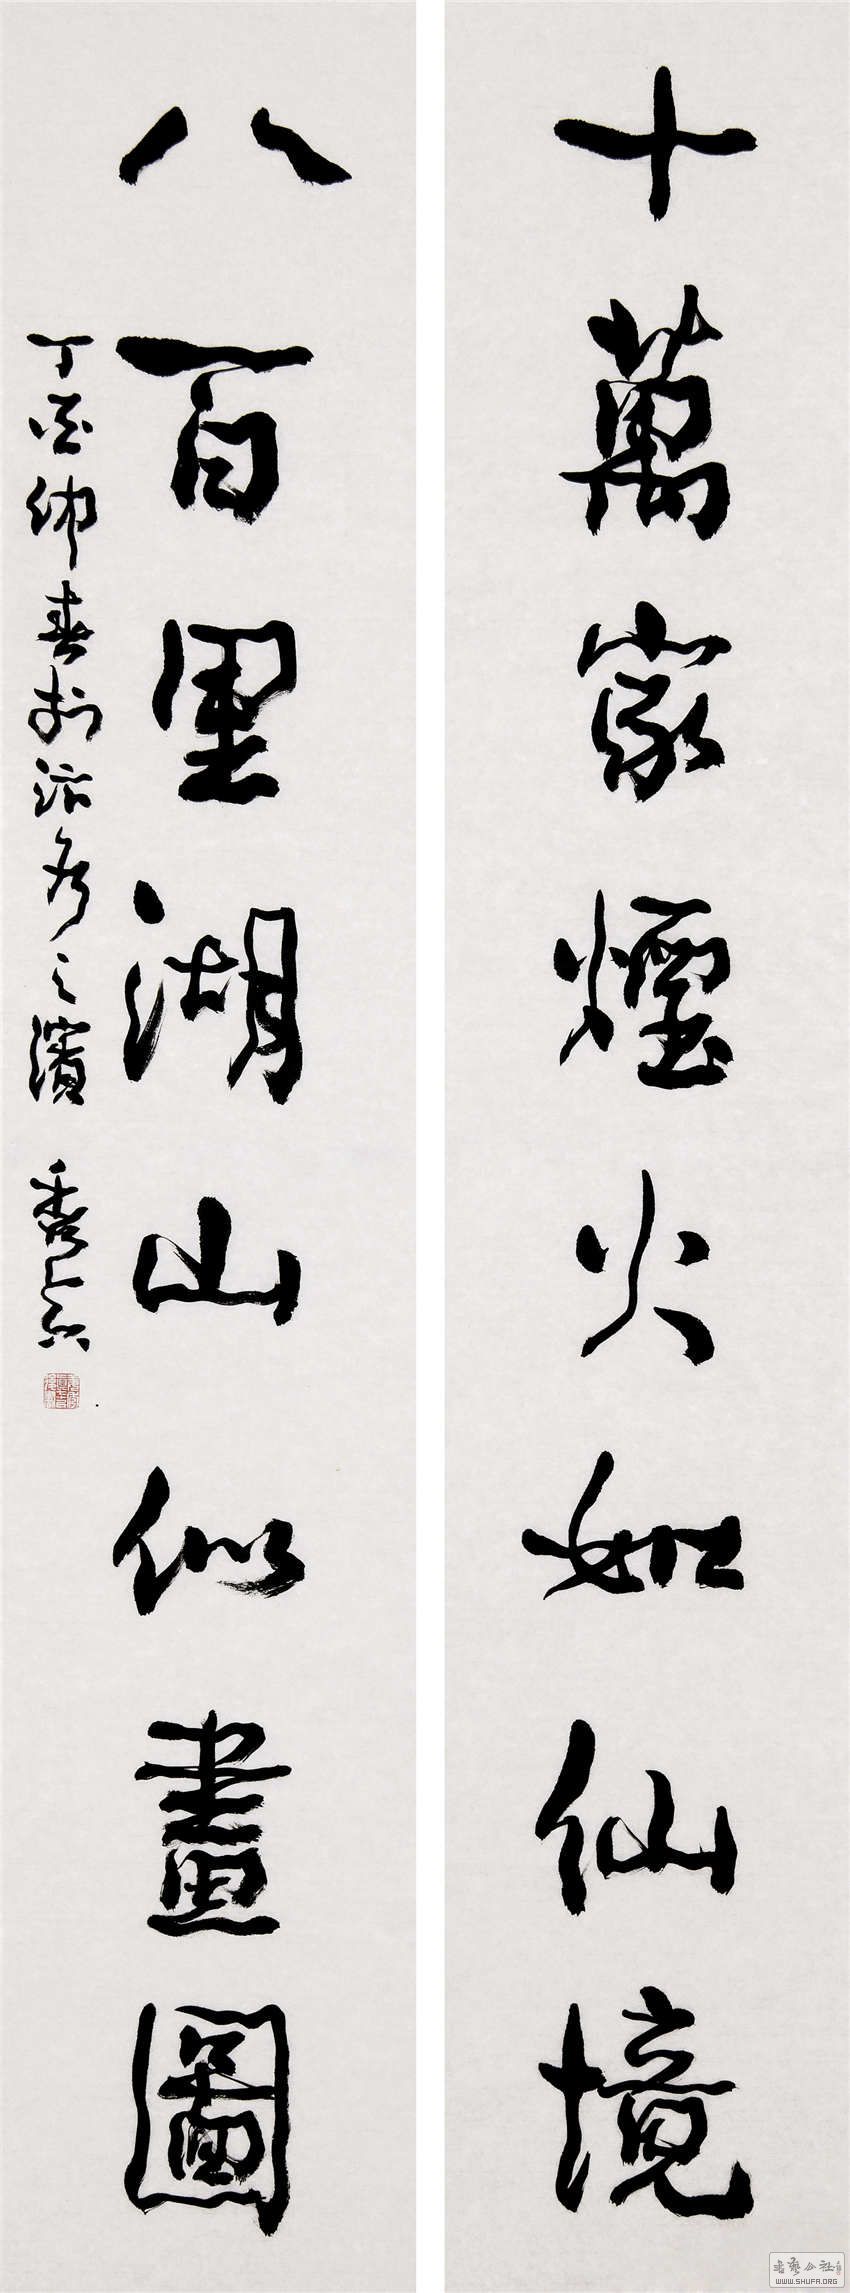 十萬家煙火如仙境
八百里湖山似畫圖
丁酉仲春於沽水之濱
書藝公社
WWW.SHUFA.ORG